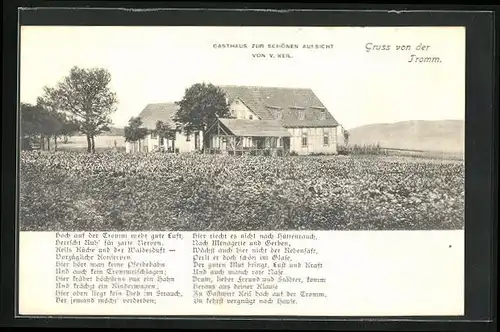 GASTHAUS ZUR SCHÖNEN AUSSICHT
VON V. KEIL.
Gruss von der
Tromm.
Hoch auf der Tromm weht gute Luft,
Herrscht Ruh' für zarte Nerven,
Keils Küche und der Waldesduft —
Vorzügliche Konserven.
Hier hört man keine Pferdebahn
Und auch kein Trommelschlagen;
Hier krähet höchstens nur ein Hahn
Und krächzt ein Kinderwagen.
Hier oben liegt kein Dieb im Strauch,
Der jemand möcht' verderben;
Hier riecht es nicht nach Hüttenrauch,
Nach Menagerie und Gerben,
Wächst auch hier nicht der Rebensaft,
Perlt er doch schön im Glase,
Der guten Mut bringt, Lust und Kraft
Und auch manch rote Nase.
Drum, lieber Freund und Städter, komm
Heraus aus deiner Klause
Zu Gastwirt Keil hoch auf der Tromm,
Du kehrst vergnügt nach Hause.